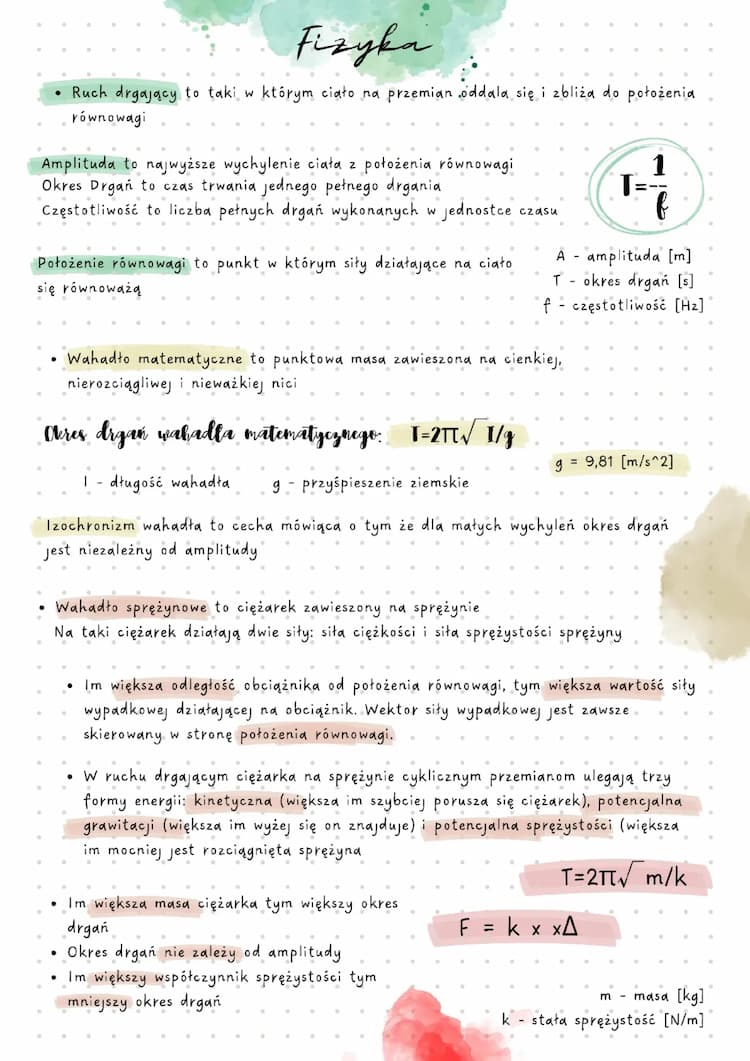 Fizyka
• Ruch drgający to taki w którym ciało na przemian oddala się i zbliża do położenia
równowagi
Amplituda to najwyższe wychylenie ciała z położenia równowagi
Okres Drgań to czas trwania jednego pełnego drgania
Częstotliwość to liczba pełnych drgań wykonanych w jednostce czasu
T=1/f
Położenie równowagi to punkt w którym siły działające na ciało
się równoważą
A - amplituda [m]
T - okres drgań [s]
f - częstotliwość [Hz]
• Wahadło matematyczne to punktowa masa zawieszona na cienkiej,
nierozciągliwej i nieważkiej nici
Okres drgań wahadła matematycznego: T=2π√ l/g
g = 9,81 [m/s^2]
l - długość wahadła g - przyśpieszenie ziemskie
Izochronizm wahadła to cecha mówiąca o tym że dla małych wychyleń okres drgań
jest niezależny od amplitudy
• Wahadło sprężynowe to ciężarek zawieszony na sprężynie
Na taki ciężarek działają dwie siły: siła ciężkości i siła sprężystości sprężyny
• Im większa odległość obciążnika od położenia równowagi, tym większa wartość siły
wypadkowej działającej na obciążnik. Wektor siły wypadkowej jest zawsze
skierowany w stronę położenia równowagi.
• W ruchu drgającym ciężarka na sprężynie cyklicznym przemianom ulegają trzy
formy energii: kinetyczna (większa im szybciej porusza się ciężarek), potencjalna
grawitacji (większa im wyżej się on znajduje) i potencjalna sprężystości (większa
im mocniej jest rozciągnięta sprężyna
T=2π√ m/k
• Im większa masa ciężarka tym większy okres
drgań
F = k x x∆
• Okres drgań nie zależy od amplitudy
• Im większy współczynnik sprężystości tym
mniejszy okres drgań
m - masa [kg]
k - stała sprężystość [N/m]